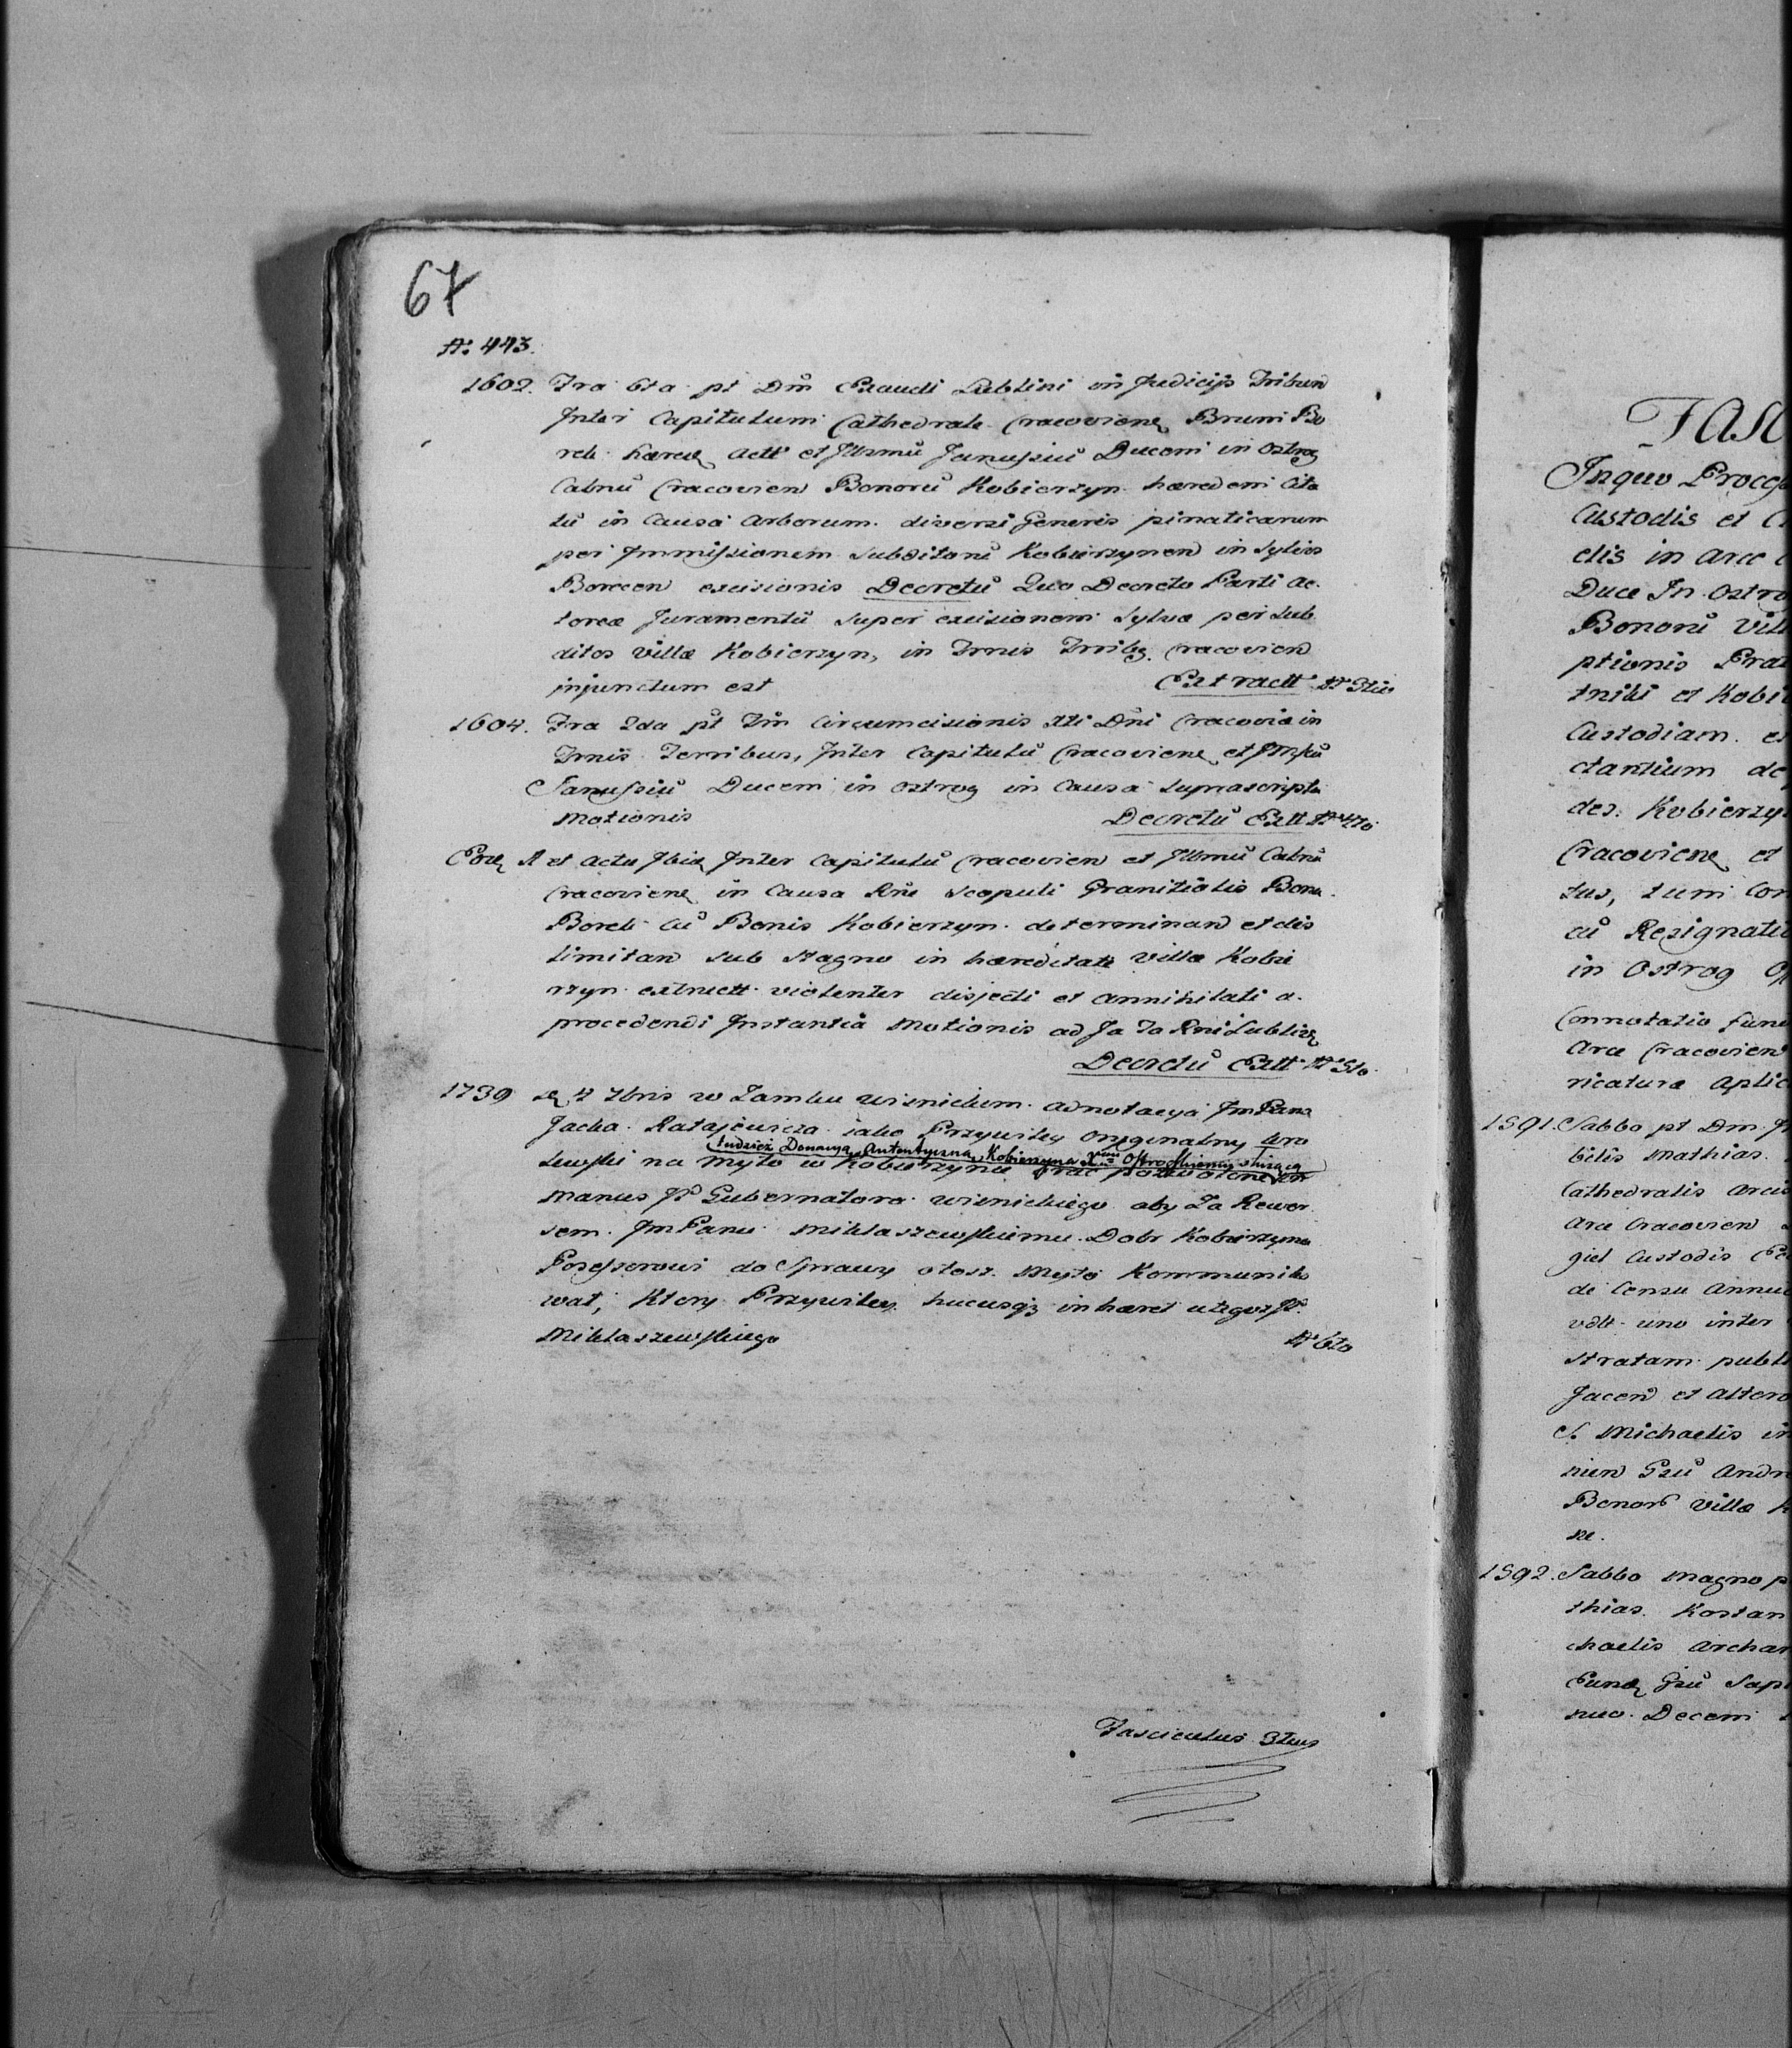 67
N: 443.
1602. Fra 6ta pt Dm Exaudi Lublini in Judicijs Tribun
Inter Capitulum Cathedrale Cracovienę Brunu Bo
rek hæredę Actt et Illrmu Janussiu Ducem in Ostrog
Catnu Cracovien Bonoru Kobierzyn hæredem Cita
tu in Causa Arborum diversi Generis pinaticarum
per Immissionem Subditoru Kobierzynen in Sylvas
Borecen excisionis Decretu Quo Decreto Parti Ac
toreæ Juramentu super excisionem Sylvæ per Sub
ditos Villæ Kobierzyn, in Trnis Trribę Cracovien
injunctum est Extractt N 3tio
1604. Fra 2da pt Fm Circumcisionis Xti Dni Cracoviæ in
Trnis Terribus, Inter Capitulu Cracovienę et
Janussiu Ducem in Ostrog in Causa Suprascripta
Motionis Decretu Extt N 4to
Eodę A et Actu Ibidę Inter Capitulu Cracovien et Illrmu Catnu
Cracovienę in Causa Rne Scopuli Granitialis Bonu
Borek Cu Bonis Kobierzyn determinan et dis
limitan sub Stagno in hæreditate Villæ Kobie
rzyn extructt violenter disjecti et annihilati a
procedendi Instantia Motionis ad Ja Ta Rni Lublinę
Decretu Extt N 5to
1739 4 7bris w Zamku Wisnickim adnotacya Jm Pana
Jacka Ratajewicza iako Przywiley oryginalny kro
tudzież Donacya Autentyczna Kobierzyna Xciu Ostrogskiemu służąca
lewski na Myto w Kobierzynie brać pozwolone
manus Jr Gubernatora Wisnickiego aby Za Rewer
sem Jm Panu Miklaszewskiemu Dobr Kobierzyna
Posessorowi do Sprawy otosz Myto Kommuniko
wał, Ktory Przywiley hucusqz inhæret u tegoż Jr
Miklaszewskiego N 6to
Fasciculus 3tius
FASC
In quo Process
Custodis et C
elis in Arce
Duce In Ostro
Bonoru Vill
ptionis Præ
tniki et Kobi
Custodiam et
ctantium de
des. Kobierzy
Cracovienę et
tus, tum Con
cu Resignatio
in Ostrog
Connotatio Fun
Arce Cracovien
ricaturæ Aplic
1591. Sabbo pt Dm
bilis Mathias
Cathedralis Arcis
Arce Cracovien
giel Custodis
de Censu Annu
vdtt uno inter
Stratam publ
Jacen et altero
S. Michaelis in
nien Andr
Bonor Villæ K
ne.
1592. Sabbo magno p
thias Kostan
chaelis Archan
Fundę Sapi
nuo Decem